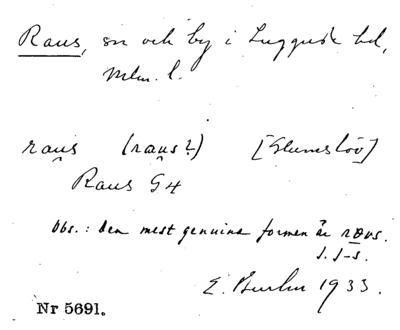 Raus, sn och by i Luggude hd,
Mlm. l.
raus (raus?) [Glumslöv]
Raus G4
Obs.: den mest genuina formen är røvs.
J. J-s.
E. 1933.
Nr 5691.